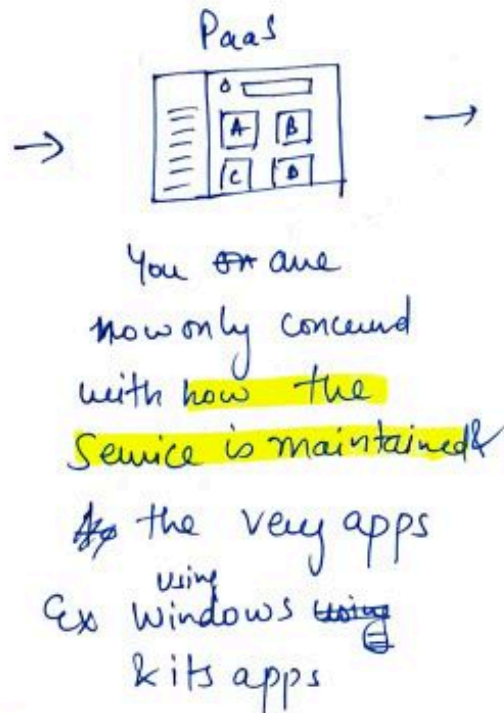 PaaS
A B
C D
You are
now only concerned
with how the
Service is maintained &
the very apps
using
Ex Windows
& its apps